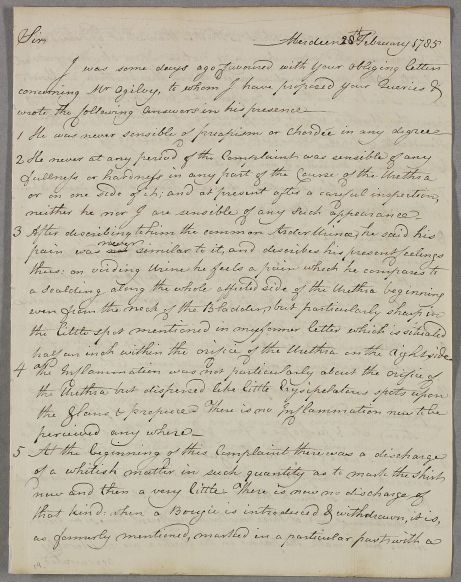 Sir
Aberdeen 28th February 1785
I was some days ago favoured with your obliging letter
concerning Mr Ogilvy, to whom I have proposed your Queries &
wrote the following answers in his presence
1 He was never sensible of priapism or Chordee in any degree
2 He never at any period of the Complaint was sensible of any
fullness or hardness in any part of the Course of the Urethra
or on one side of it; and at present after a careful inspection,
neither he nor I are sensible of any such appearance
3 After describing to him the common Ardor Urinæ, he said his
pain was never similar to it, and describes his present feelings
thus: on voiding Urine he feels a pain which he compares to
a scalding along the whole affected side of the Urethra beginning
even from the neck of the Bladder, but particularly sharp in
the little spot mentioned in my former letter which is situated
half an inch within the orifice of the Urethra on the right side
4 The Inflammation was not particularly about the orifice of
the Urethra but dispersed like little Erysipelatous spots upon
the Glans & prepuce. There is no Inflammation now to be
perceived any where
5 At the beginning of this Complaint there was a discharge
of a whitish matter in such quantity as to mark the shirt
now and then a very little. There is now no discharge of
that kind: when a Bougie is introduced & withdrawn, it is,
as formerly mentioned, marked in a particular part with a